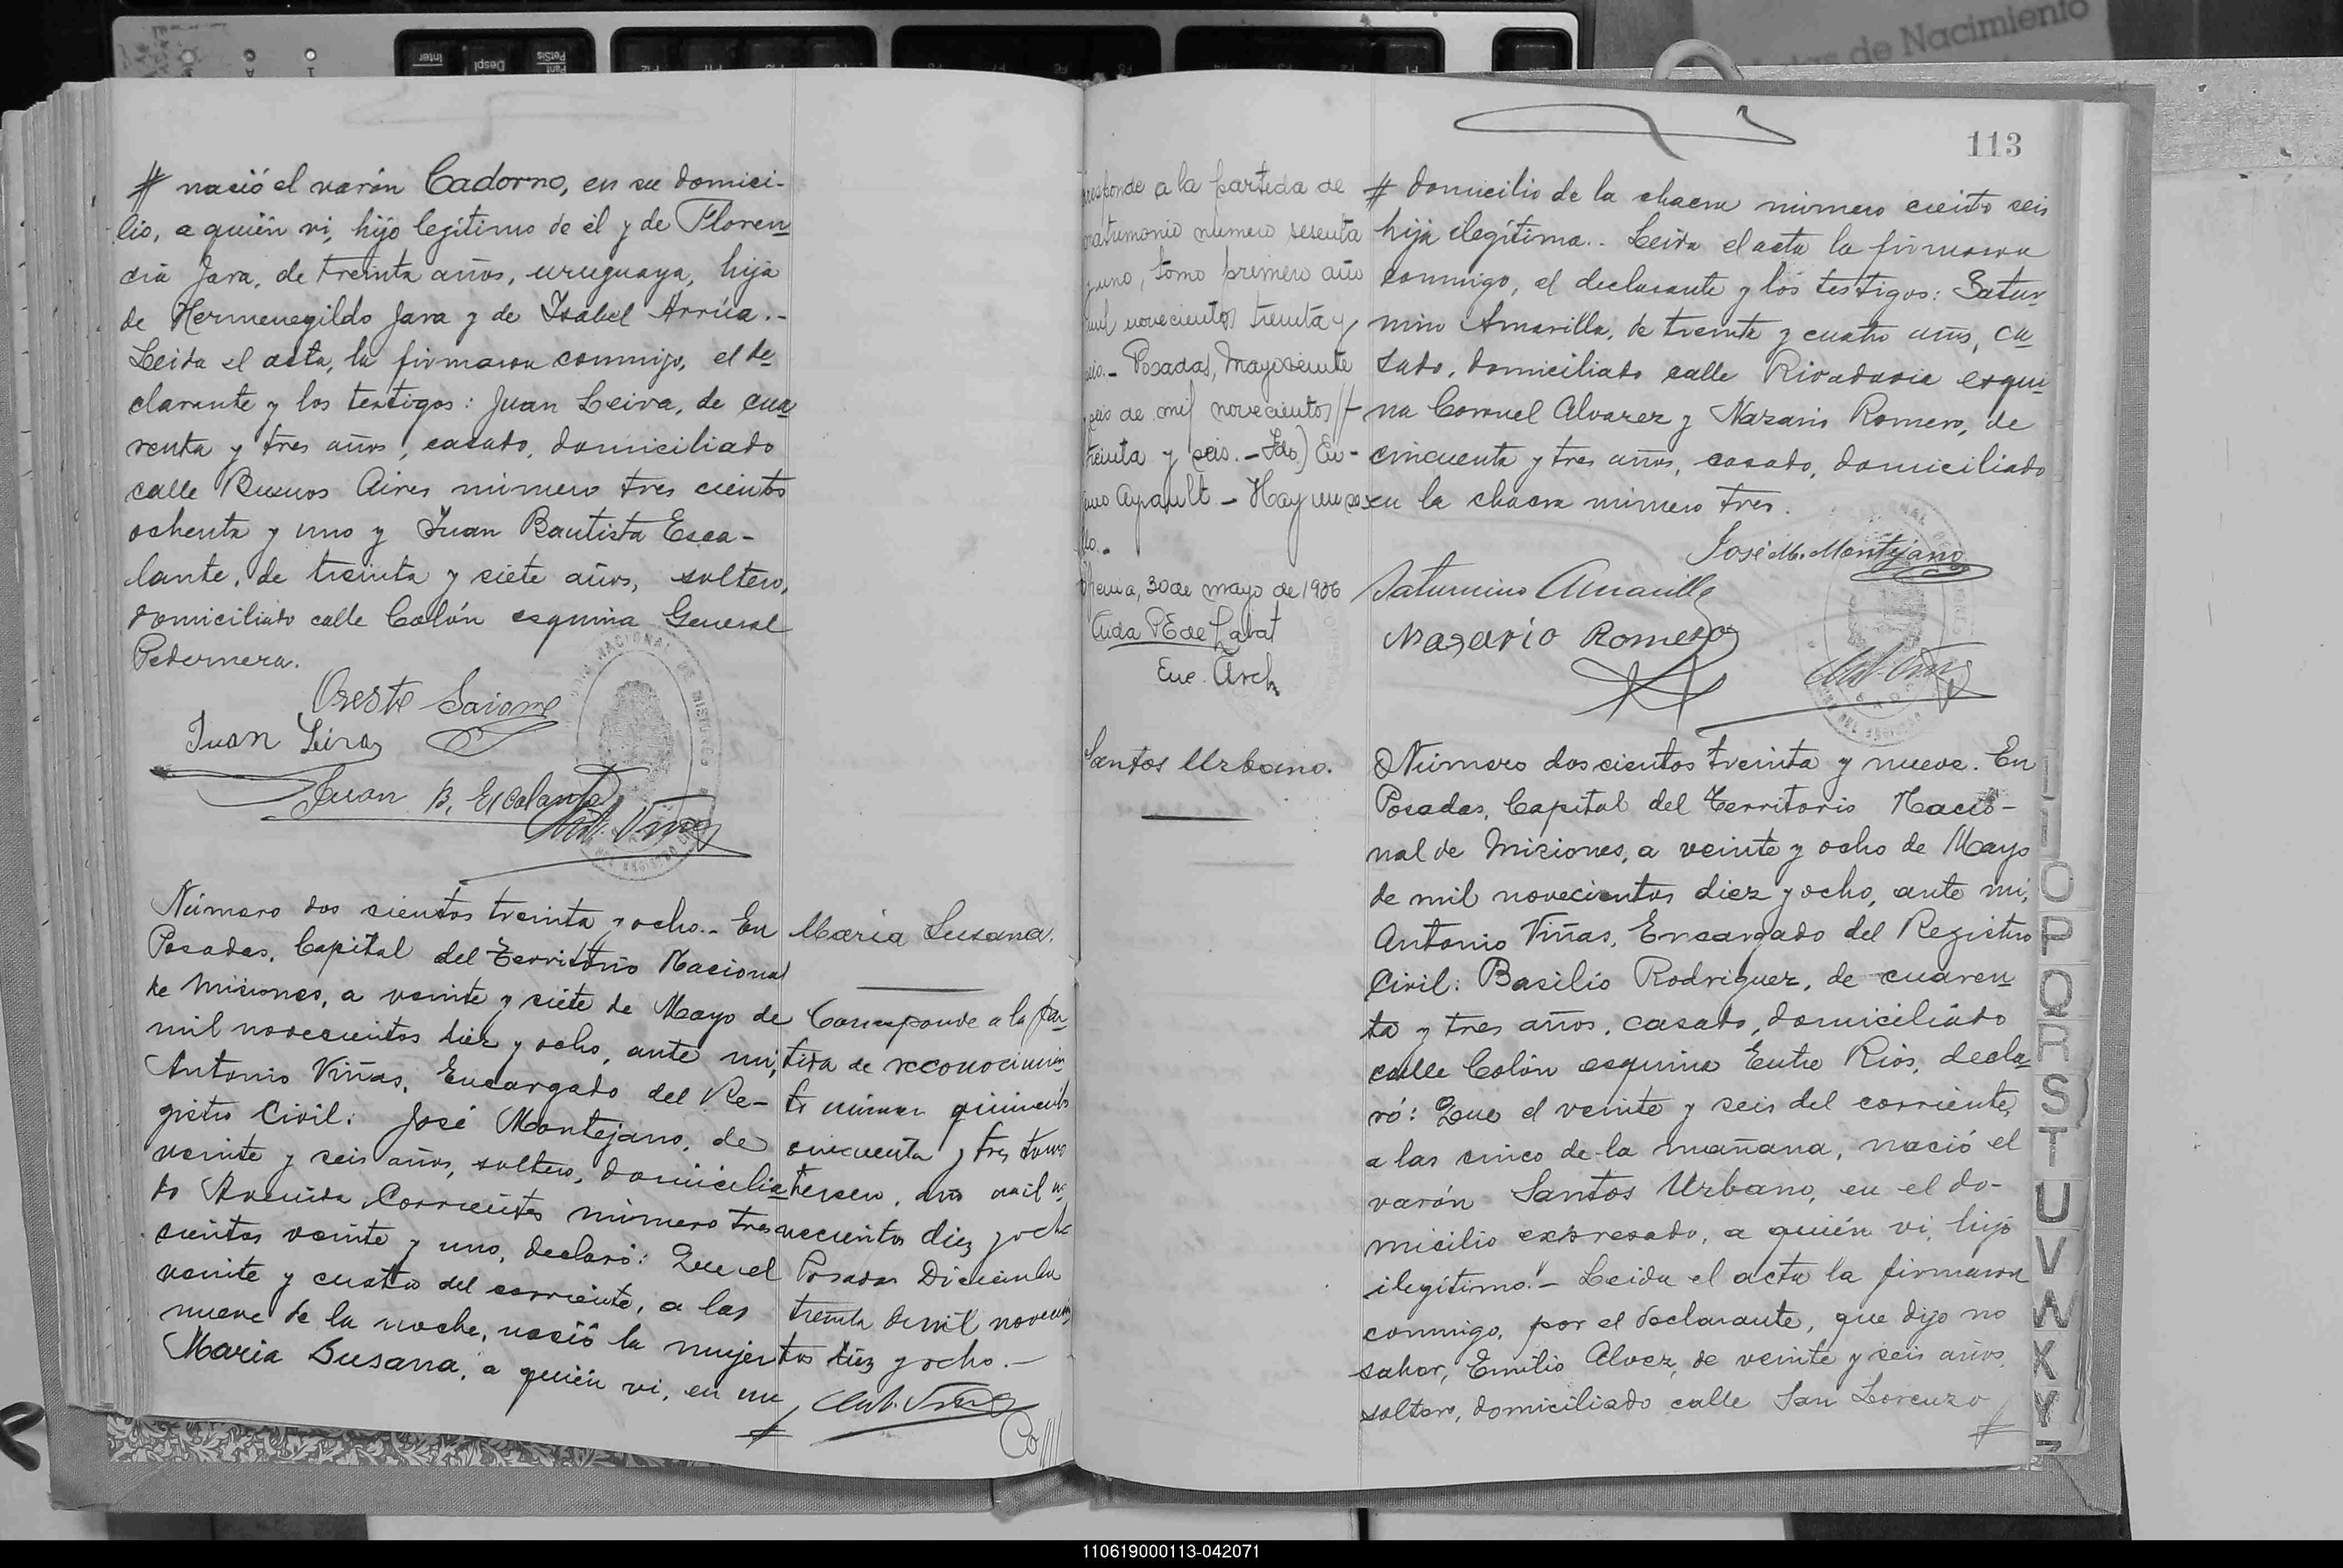 # nació el varón Cadorno, en su domici-
lio, a quién vi, hijo legítimo de él y de Floren
cia Jara, de treinta años, uruguaya, hija
de Hermenegildo Jara y de Isabel Arrúa.-
Leida el acta, la firmaron conmigo, el de
clarante y los testigos: Juan Leiva, de cua
renta y tres años, casado, domiciliado
calle Buenos Aires número tres cientos
ochenta y uno y Juan Bautista Esca-
lante, de treinta y siete años, soltero,
domiciliado calle Colón esquina General
Pedernera.
Oreste Saiome
Juan Leiva
Juan B. Escalante
Ant. Viñas
Número dos cientos treinta y ocho.- En
Posadas, Capital del Territorio Nacional
de Misiones, a veinte y siete de Mayo de
mil novecientos diez y ocho, ante mi,
Antonio Viñas, Encargado del Re-
gistro Civil: José Montejano, de
veinte y seis años, soltero, domicilia
do Avenida Corrientes número tres
cientos veinte y uno, declaró: Que el
veinte y cuatro del corriente, a las
nueve de la noche, nació la mujer
Maria Susana, a quién vi, en un
#
Maria Susana.
Corresponde a la par-
tida de reconocimien
to número quinientos
cincuenta y tres tomo
tercero, año mil no
vecientos diez y ocho
Posadas Diciembre
treinta de mil novecien
tos diez y ocho.-
Ant. Viñas
Co///
113
rresponde a la partida de
matrimonio número sesenta
y uno, tomo primero año
mil novecientos treinta y
seis.- Posadas, Mayo veinte
y seis de mil novecientos//-
treinta y seis.- Fdo.)
Ayrault.- Hay un se-
llo.-
30 de mayo de 1936
Aida P E de Labat
Enc. Arch
# domicilio de la chacra número ciento seis
hija ilegítima.- Leida el acta la firmaron
conmigo, el declarante y los testigos: Satur
nino Amarilla, de treinta y cuatro años, ca
sado, domiciliado calle Rivadavia esqui
na Coronel Alvarez y Nazario Romero, de
cincuenta y tres años, casado, domiciliado
en la chacra número tres.
José M. Montejano
Saturnino Amarilla
Nasario Romero
Ant. Viñas
Santos Urbano.
Número dos cientos treinta y nueve. En
Posadas, Capital del Territorio Nacio-
nal de Misiones, a veinte y ocho de Mayo
de mil novecientos diez y ocho, ante mi,
Antonio Viñas, Encargado del Registro
Civil: Basilio Rodriguez, de cuaren
ta y tres años, casado, domiciliado
calle Colón esquina Entre Rios, decla
ró: Que el veinte y seis del corriente,
a las cinco de la mañana, nació el
varón Santos Urbano, en el do-
micilio expresado, a quién vi, hijo
ilegítimo.- Leida el acta la firmaron
conmigo, por el declarante, que dijo no
saber, Emilio Alvez, de veinte y seis años,
soltero, domiciliado calle San Lorenzo
#
O
P
Q
R
S
T
U
V
W
X
Y
Z
de Nacimiento
110619000113-042071